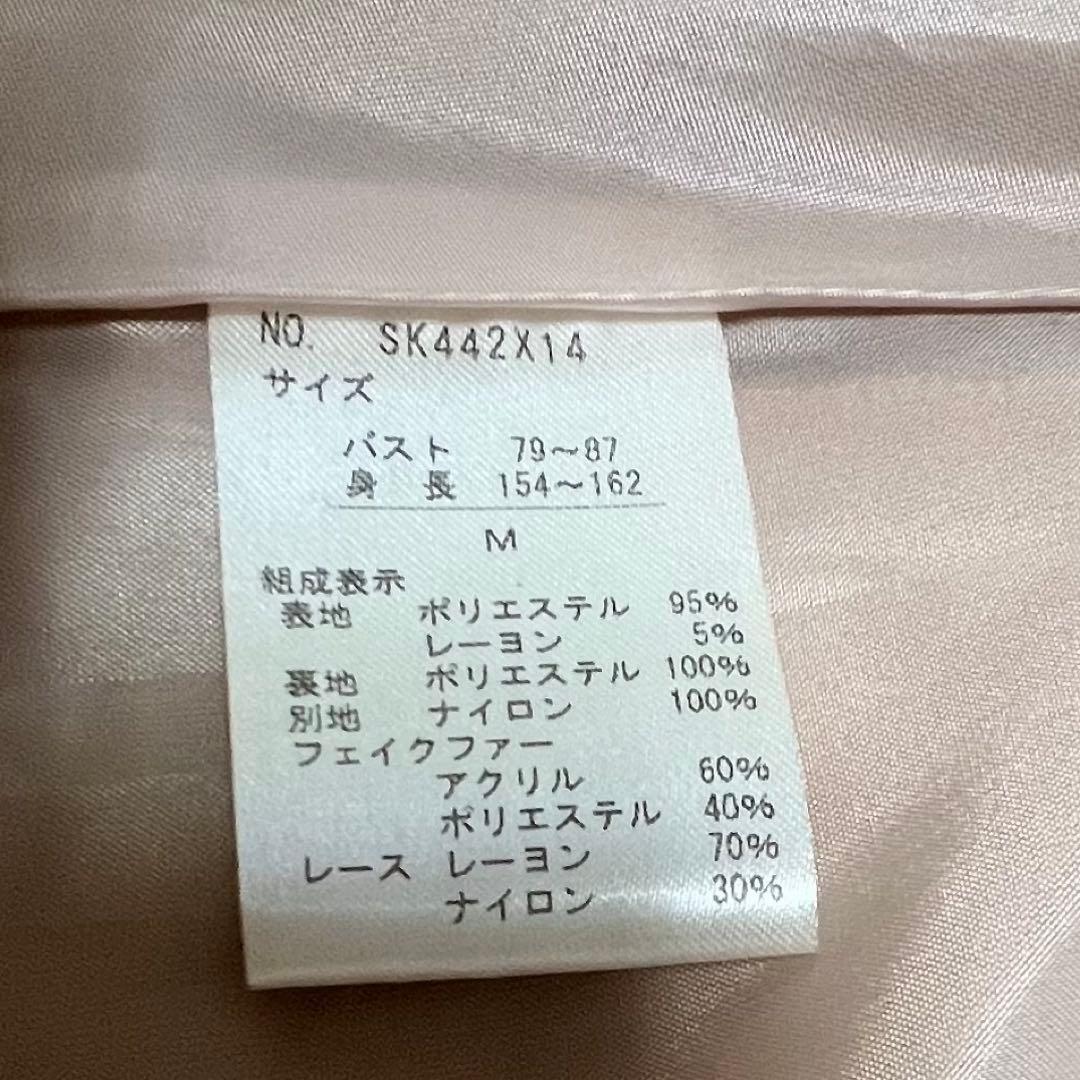 NO. SK442X14
サイズ
バスト 79～87
身長 154～162
M
組成表示
表地 ポリエステル 95%
レーヨン 5%
裏地 ポリエステル 100%
別地 ナイロン 100%
フェイクファー
アクリル 60%
ポリエステル 40%
レース レーヨン 70%
ナイロン 30%